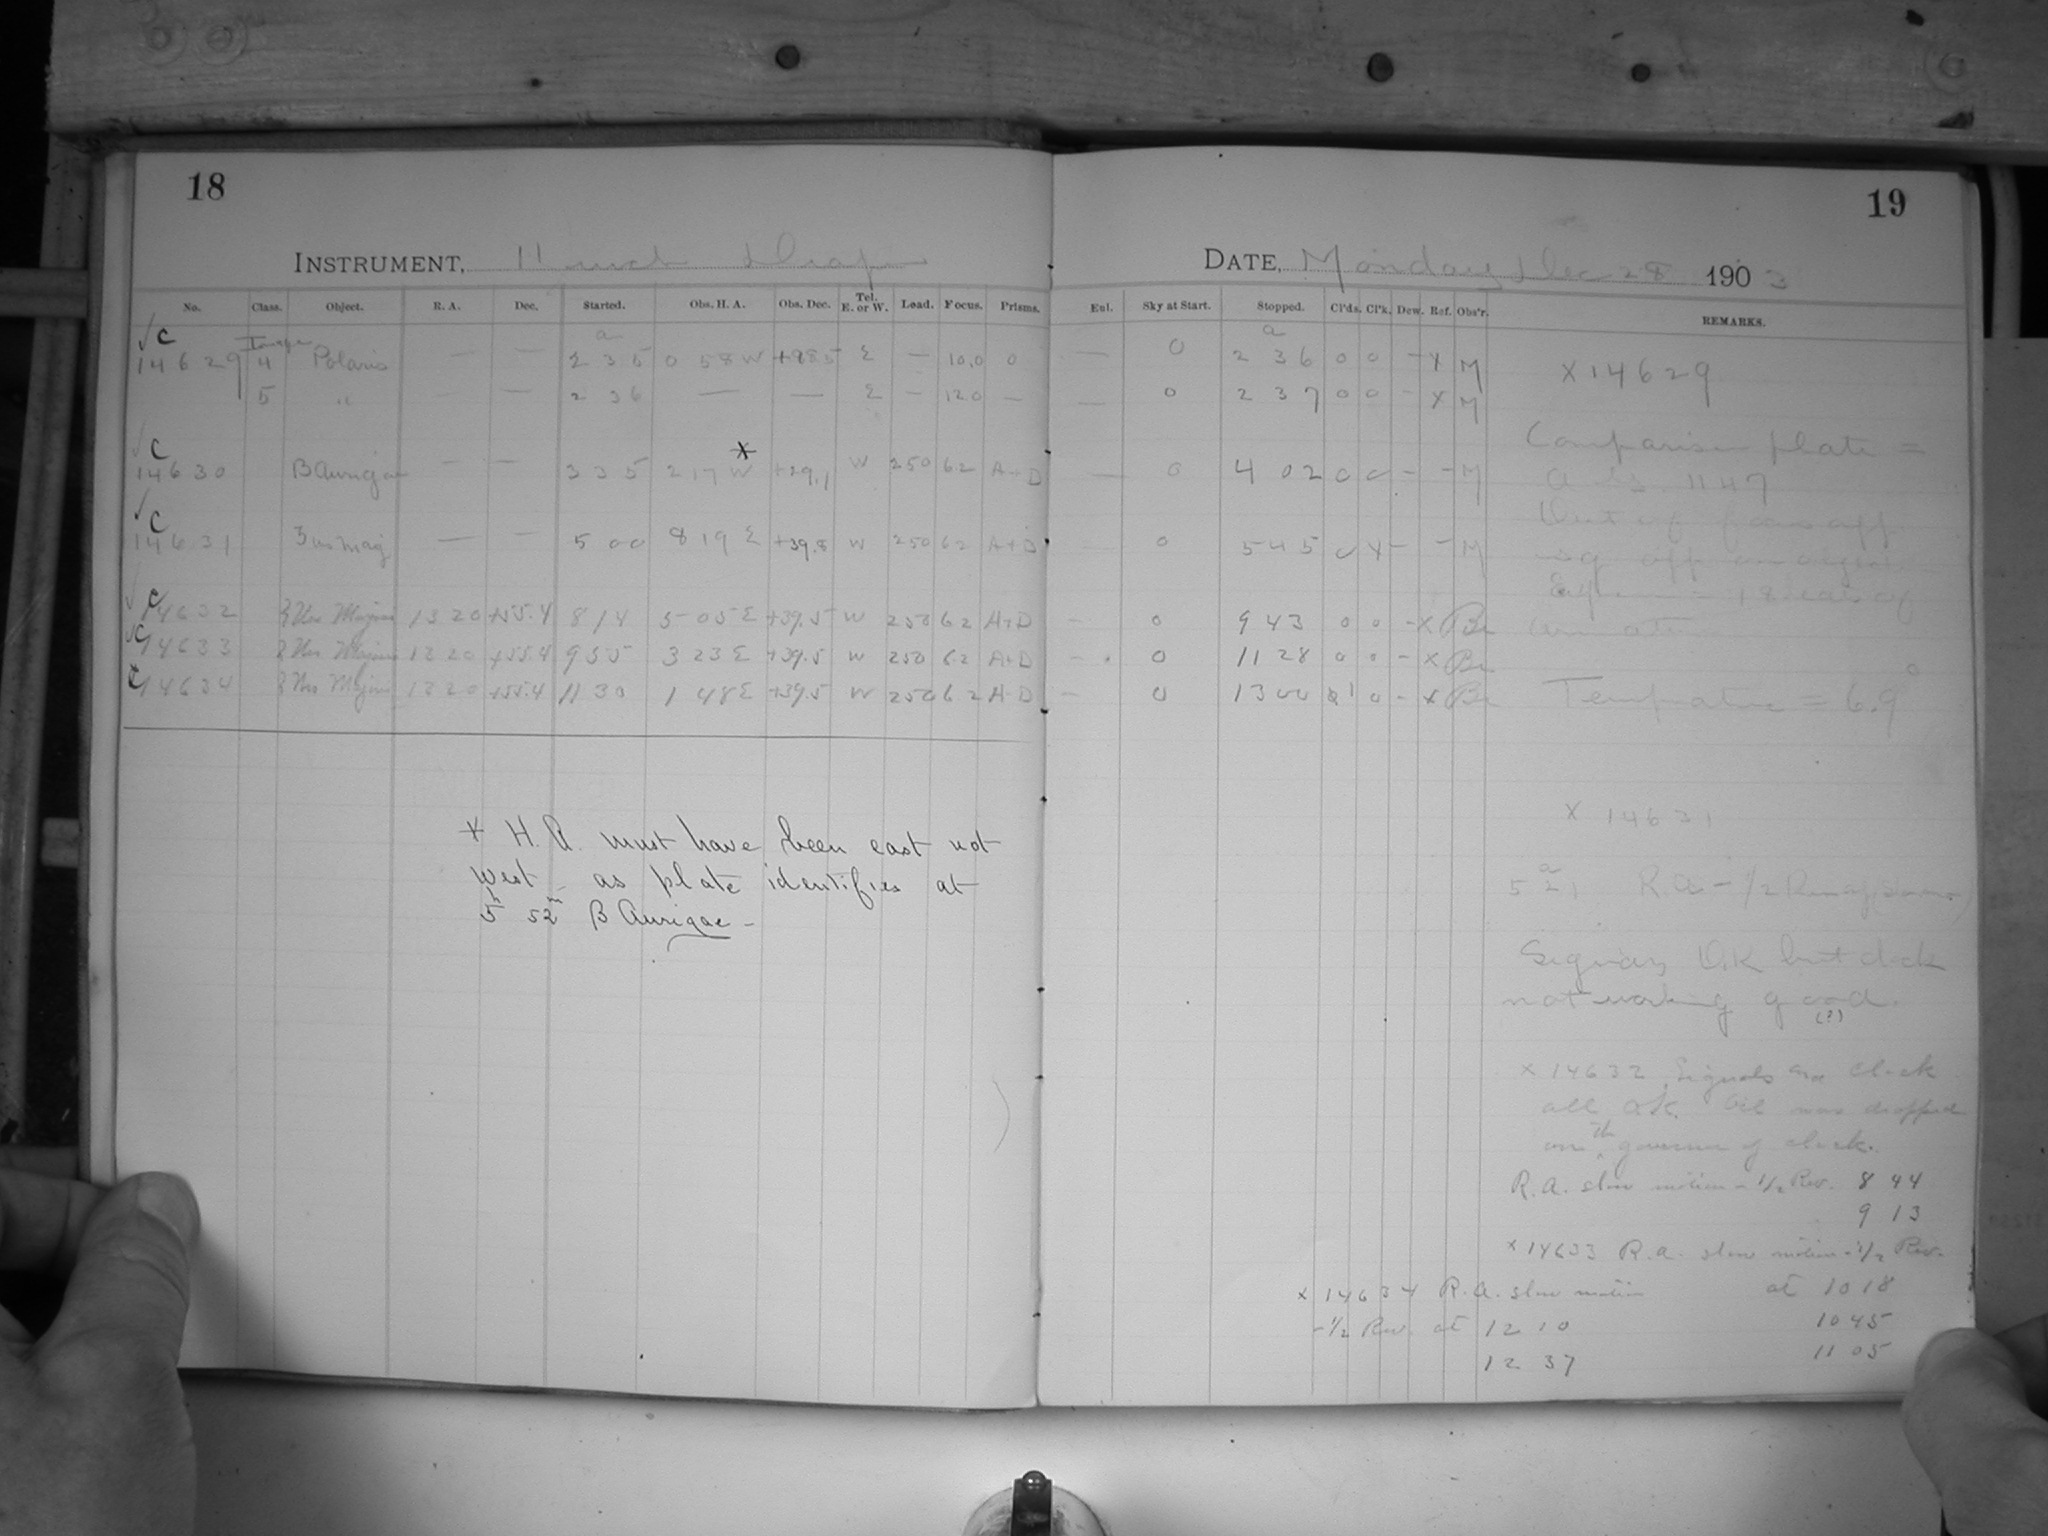 18
INSTRUMENT, 11 inch Draper
No. Class. Object. R. A. Dec. Started. Obs. H. A. Obs. Dec. Tel. E. or W. Load. Focus. Prisms.
√ C Image a
14629 4 Polaris — — 2 35 0 58 W +88.5 E — 10.0 0
5 " — — 2 36 — — E — 12.0 —
√ C *
14630 B Aurigae — — 3 35 2 17 W +29.1 W 250 6.2 A+D
√ C
14631 3 us maj — — 5 00 8 19 E +39.8 W 250 6.2 A+D
√ C
14632 ξ Urs Majoris 13 20 +55.4 8 14 5 05 E +39.5 W 250 6.2 A+D
√ C
14633 ξ Urs Majoris 13 20 +55.4 9 55 3 23 E +39.5 W 250 6.2 A+D
C
14634 ξ Urs Majoris 13 20 +55.4 11 30 1 48 E +39.5 W 250 6.2 A+D
* H. A. must have been east not
west – as plate identifies at
5h 52m B Aurigae –
19
DATE, Monday Dec 28 1903
Enl. Sky at Start. Stopped. Cl'ds. Cl'k. Dew. Ref. Obs'r. REMARKS.
a
— 0 2 36 0 0 - x M
— 0 2 37 0 0 - x M
— 0 4 02 0 0 - - M
— 0 5 45 0 x - - M
- 0 9 43 0 0 - x Be
- 0 11 28 0 0 - x Be
- 0 13 00 1 0 - x Be
x 14629
Comparison plate =
1147
Out of focus
Temperature = 6.9°
x 14631
5 21 a R.A. - 1/2 Rev
Signals O.K but clock
not working good.
(?)
x 14632 Signals and clock
all O.K. Oil was dropped
on the governor of clock.
R.A. slow motion - 1/2 Rev. 8 44
9 13
x 14633 R.A. slow motion - 1/2 Rev.
at 10 18
10 45
11 05
x 14634 R.A. slow motion
- 1/2 Rev. at 12 10
12 37